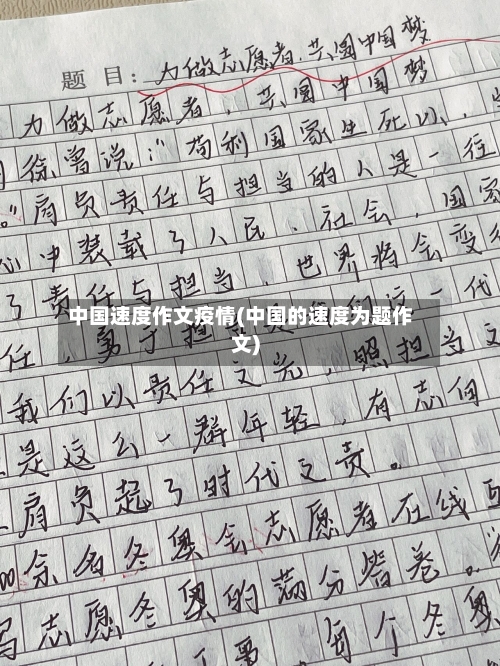 题 目：力做志愿者，共圆中国梦
力做志愿者，共圆中国梦
徐曾说：“苟利国家生死以，
。”肩负责任与担当的人是一往
心中装载了人民、社会、国家
了责任与担当，世界将会变
中国速度作文疫情(中国的速度为题作
文)
任，勇于担
一代
我们以责任之光，照担当之
是这么一群年轻，有志向
肩负起了时代之责。
00余名冬奥会志愿者在线
志愿冬奥的满分答卷。
每个冬奥